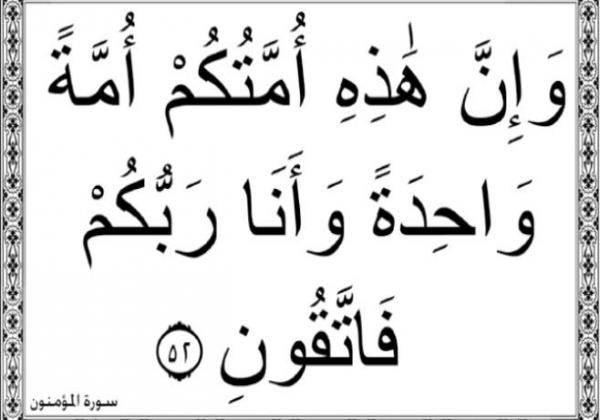 وَإِنَّ هَٰذِهِ أُمَّتُكُمْ أُمَّةً
وَاحِدَةً وَأَنَا رَبُّكُمْ
فَاتَّقُونِ ٥٢
سورة المؤمنون